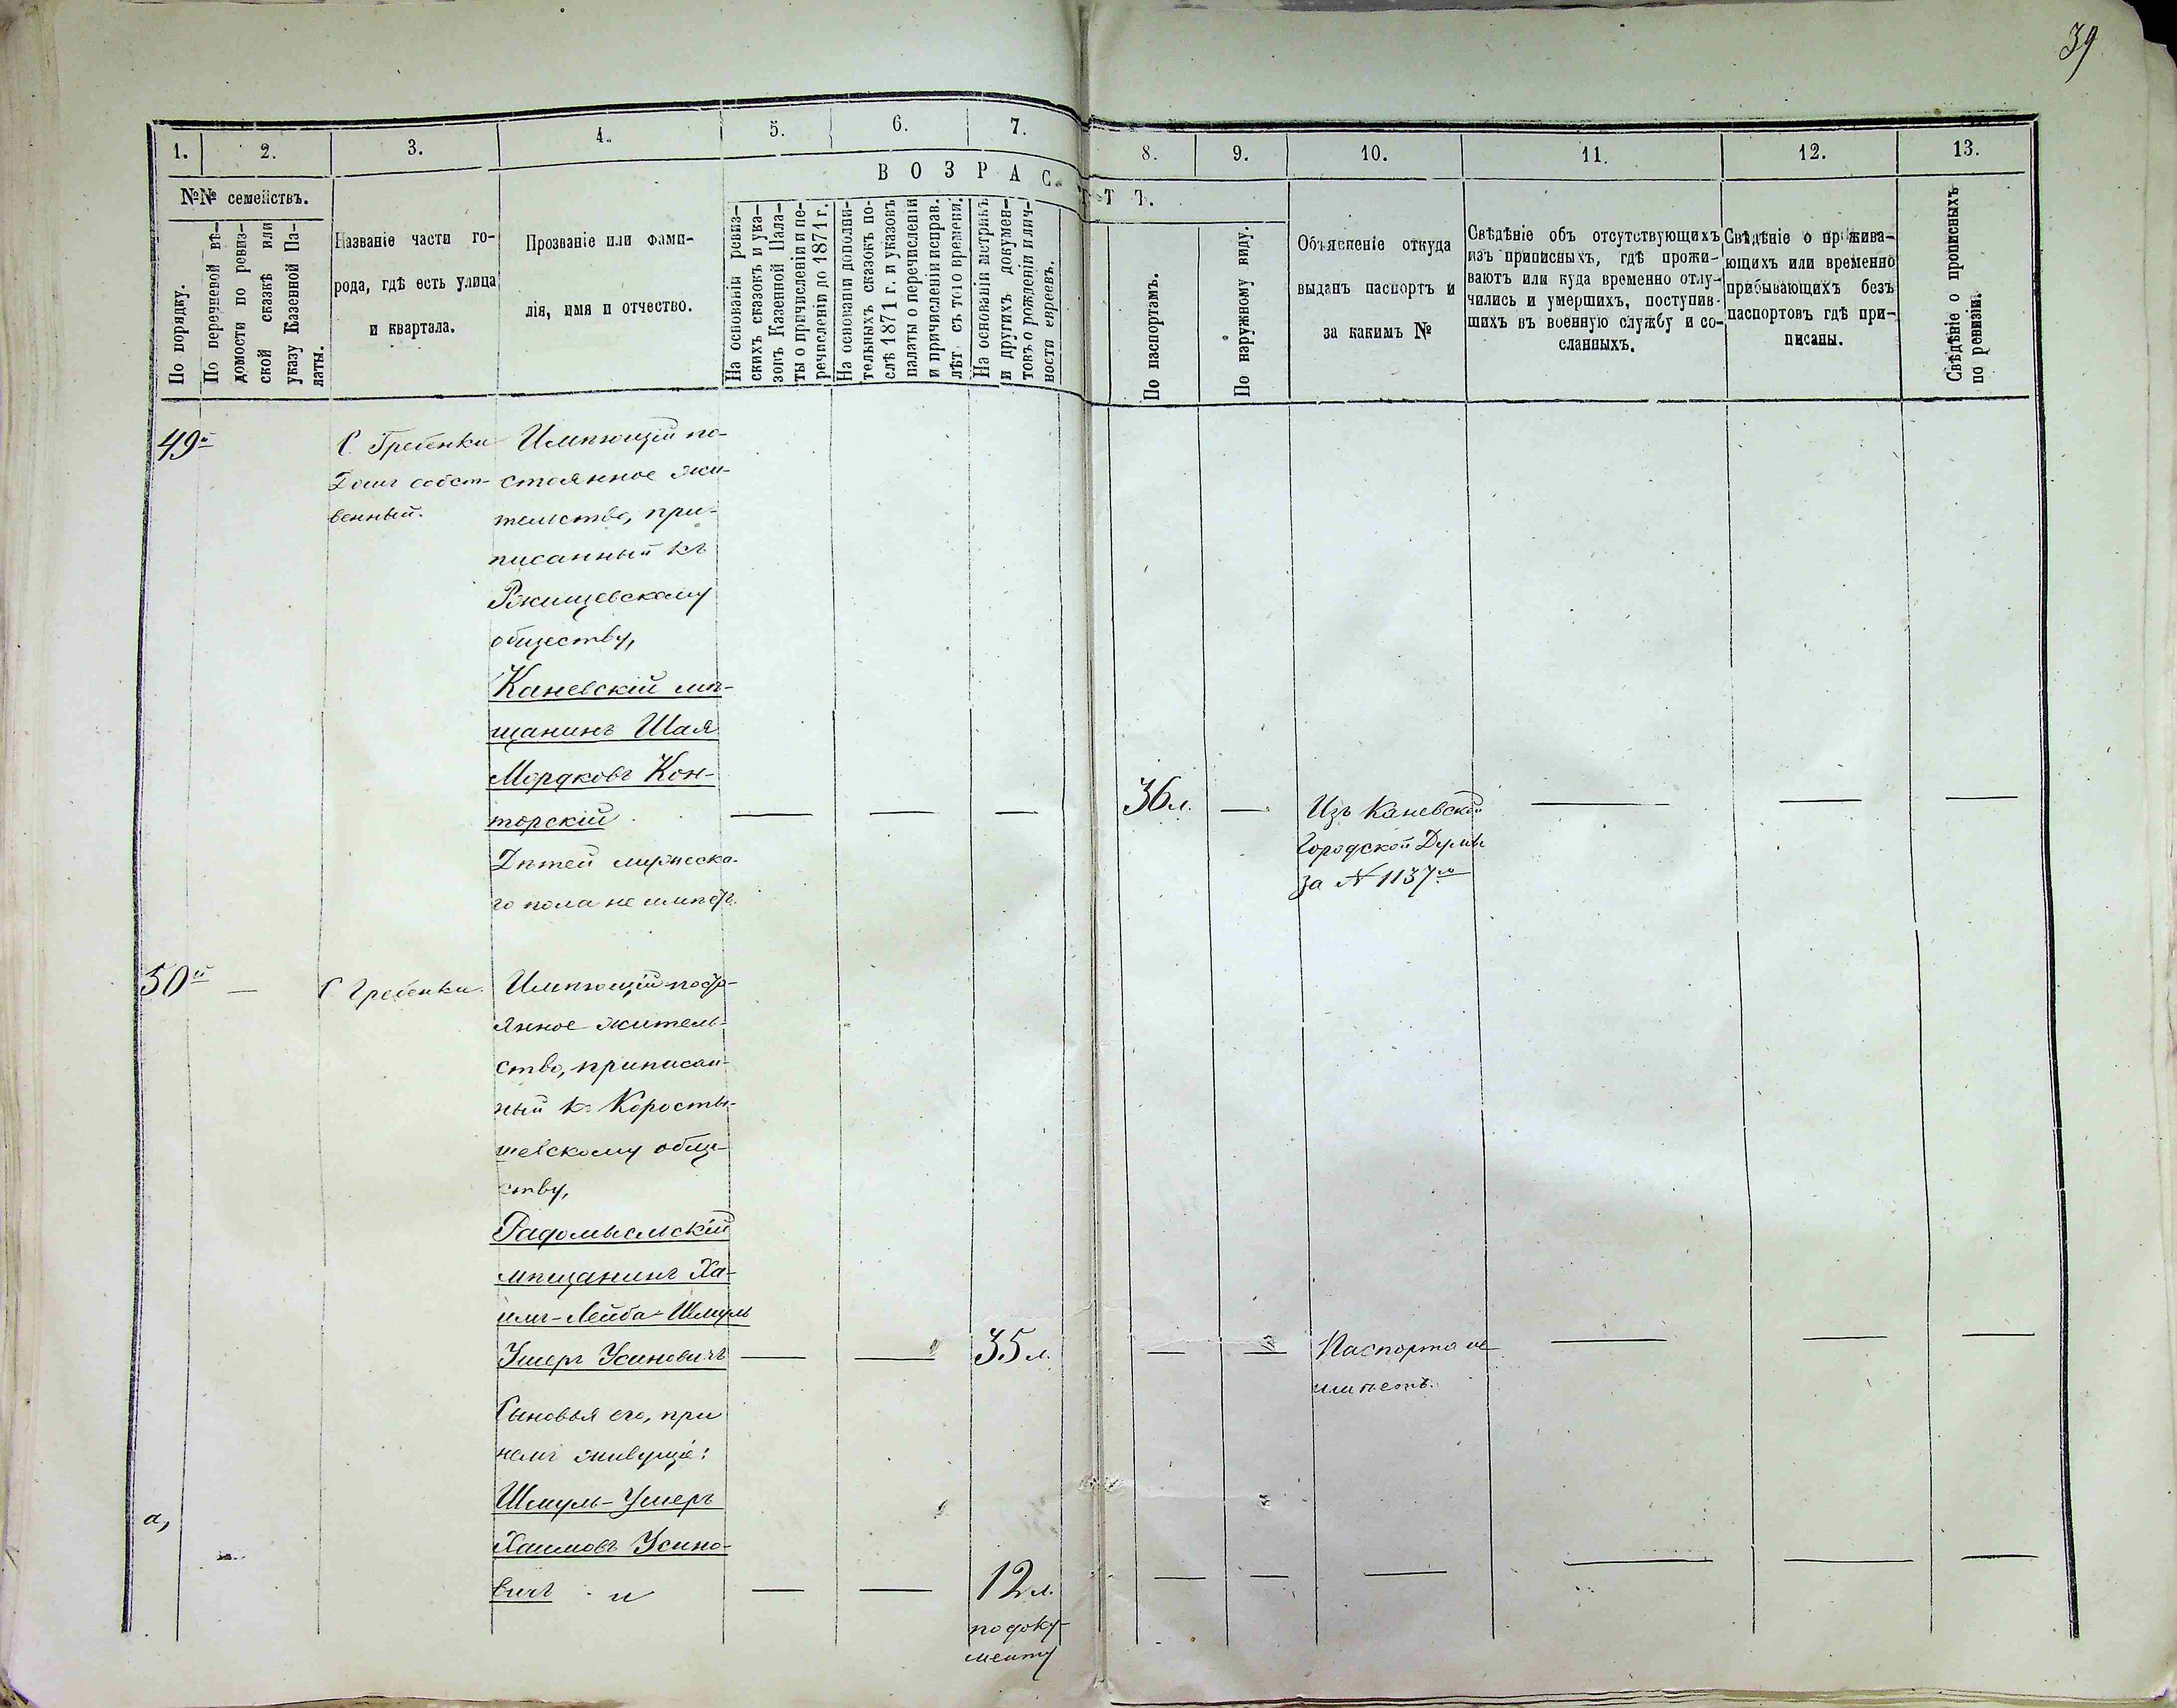 39
1. 2. 3. 4. 5. 6. 7. 8. 9. 10. 11. 12. 13.
№№ семействъ.
В О З Р А С Т Ъ.
По порядку.
По перечневой вѣ-
домости по ревиз-
ской сказкѣ или
указу Казенной Па-
латы.
Названіе части го-
рода, гдѣ есть улица
и квартала.
Прозваніе или фами-
лія, имя и отчество.
На основаніи ревиз-
скихъ сказокъ и ука-
зовъ Казенной Пала-
ты о причисленіи и пе-
речисленіи до 1871 г.
На основаніи дополни-
тельныхъ сказокъ по-
слѣ 1871 г. и указовъ
палаты о перечисленіи
и причисленіи исправ.
лѣт съ того времени.
На основаніи метрикъ
и другихъ докумен-
товъ о рожденіи и лич-
ности евреевъ.
По паспортамъ.
По наружному виду.
Объясненіе откуда
выданъ паспортъ и
за какимъ №
Свѣдѣніе объ отсутствующихъ
изъ приписныхъ, гдѣ прожи-
ваютъ или куда временно отлу-
чились и умершихъ, поступив-
шихъ въ военную службу и со-
сланныхъ.
Свѣдѣніе о прожива-
ющихъ или временно
прибывающихъ безъ
паспортовъ гдѣ при-
писаны.
Свѣдѣніе о прописныхъ
по ревизіи.
49й
С. Гребенки
Домъ собст-
венный.
Имѣющій по-
стоянное жи-
тельство, при-
писанный къ
Ржищевскому
обществу,
Каневскій мѣ-
щанинъ Шая
Мордковъ Кон-
торскій
Дѣтей мужеска-
го пола не имѣетъ.
36 л.
Изъ Каневской
Городской Думы
за № 1137м
50й
С Гребенки.
Имѣющій посто-
янное житель-
ство, приписан-
ный къ Коросты-
шевскому обще-
ству,
Радомысльскій
мѣщанинъ Ха-
имъ-Лейба-Шмуль
Ушеръ Усиновичъ
35 л.
Паспорта не
имѣетъ.
Сыновья его, при
немъ живущіе:
а,
Шмуль-Ушеръ
Хаимовъ Усино-
вичъ и
12 л.
по доку-
менту